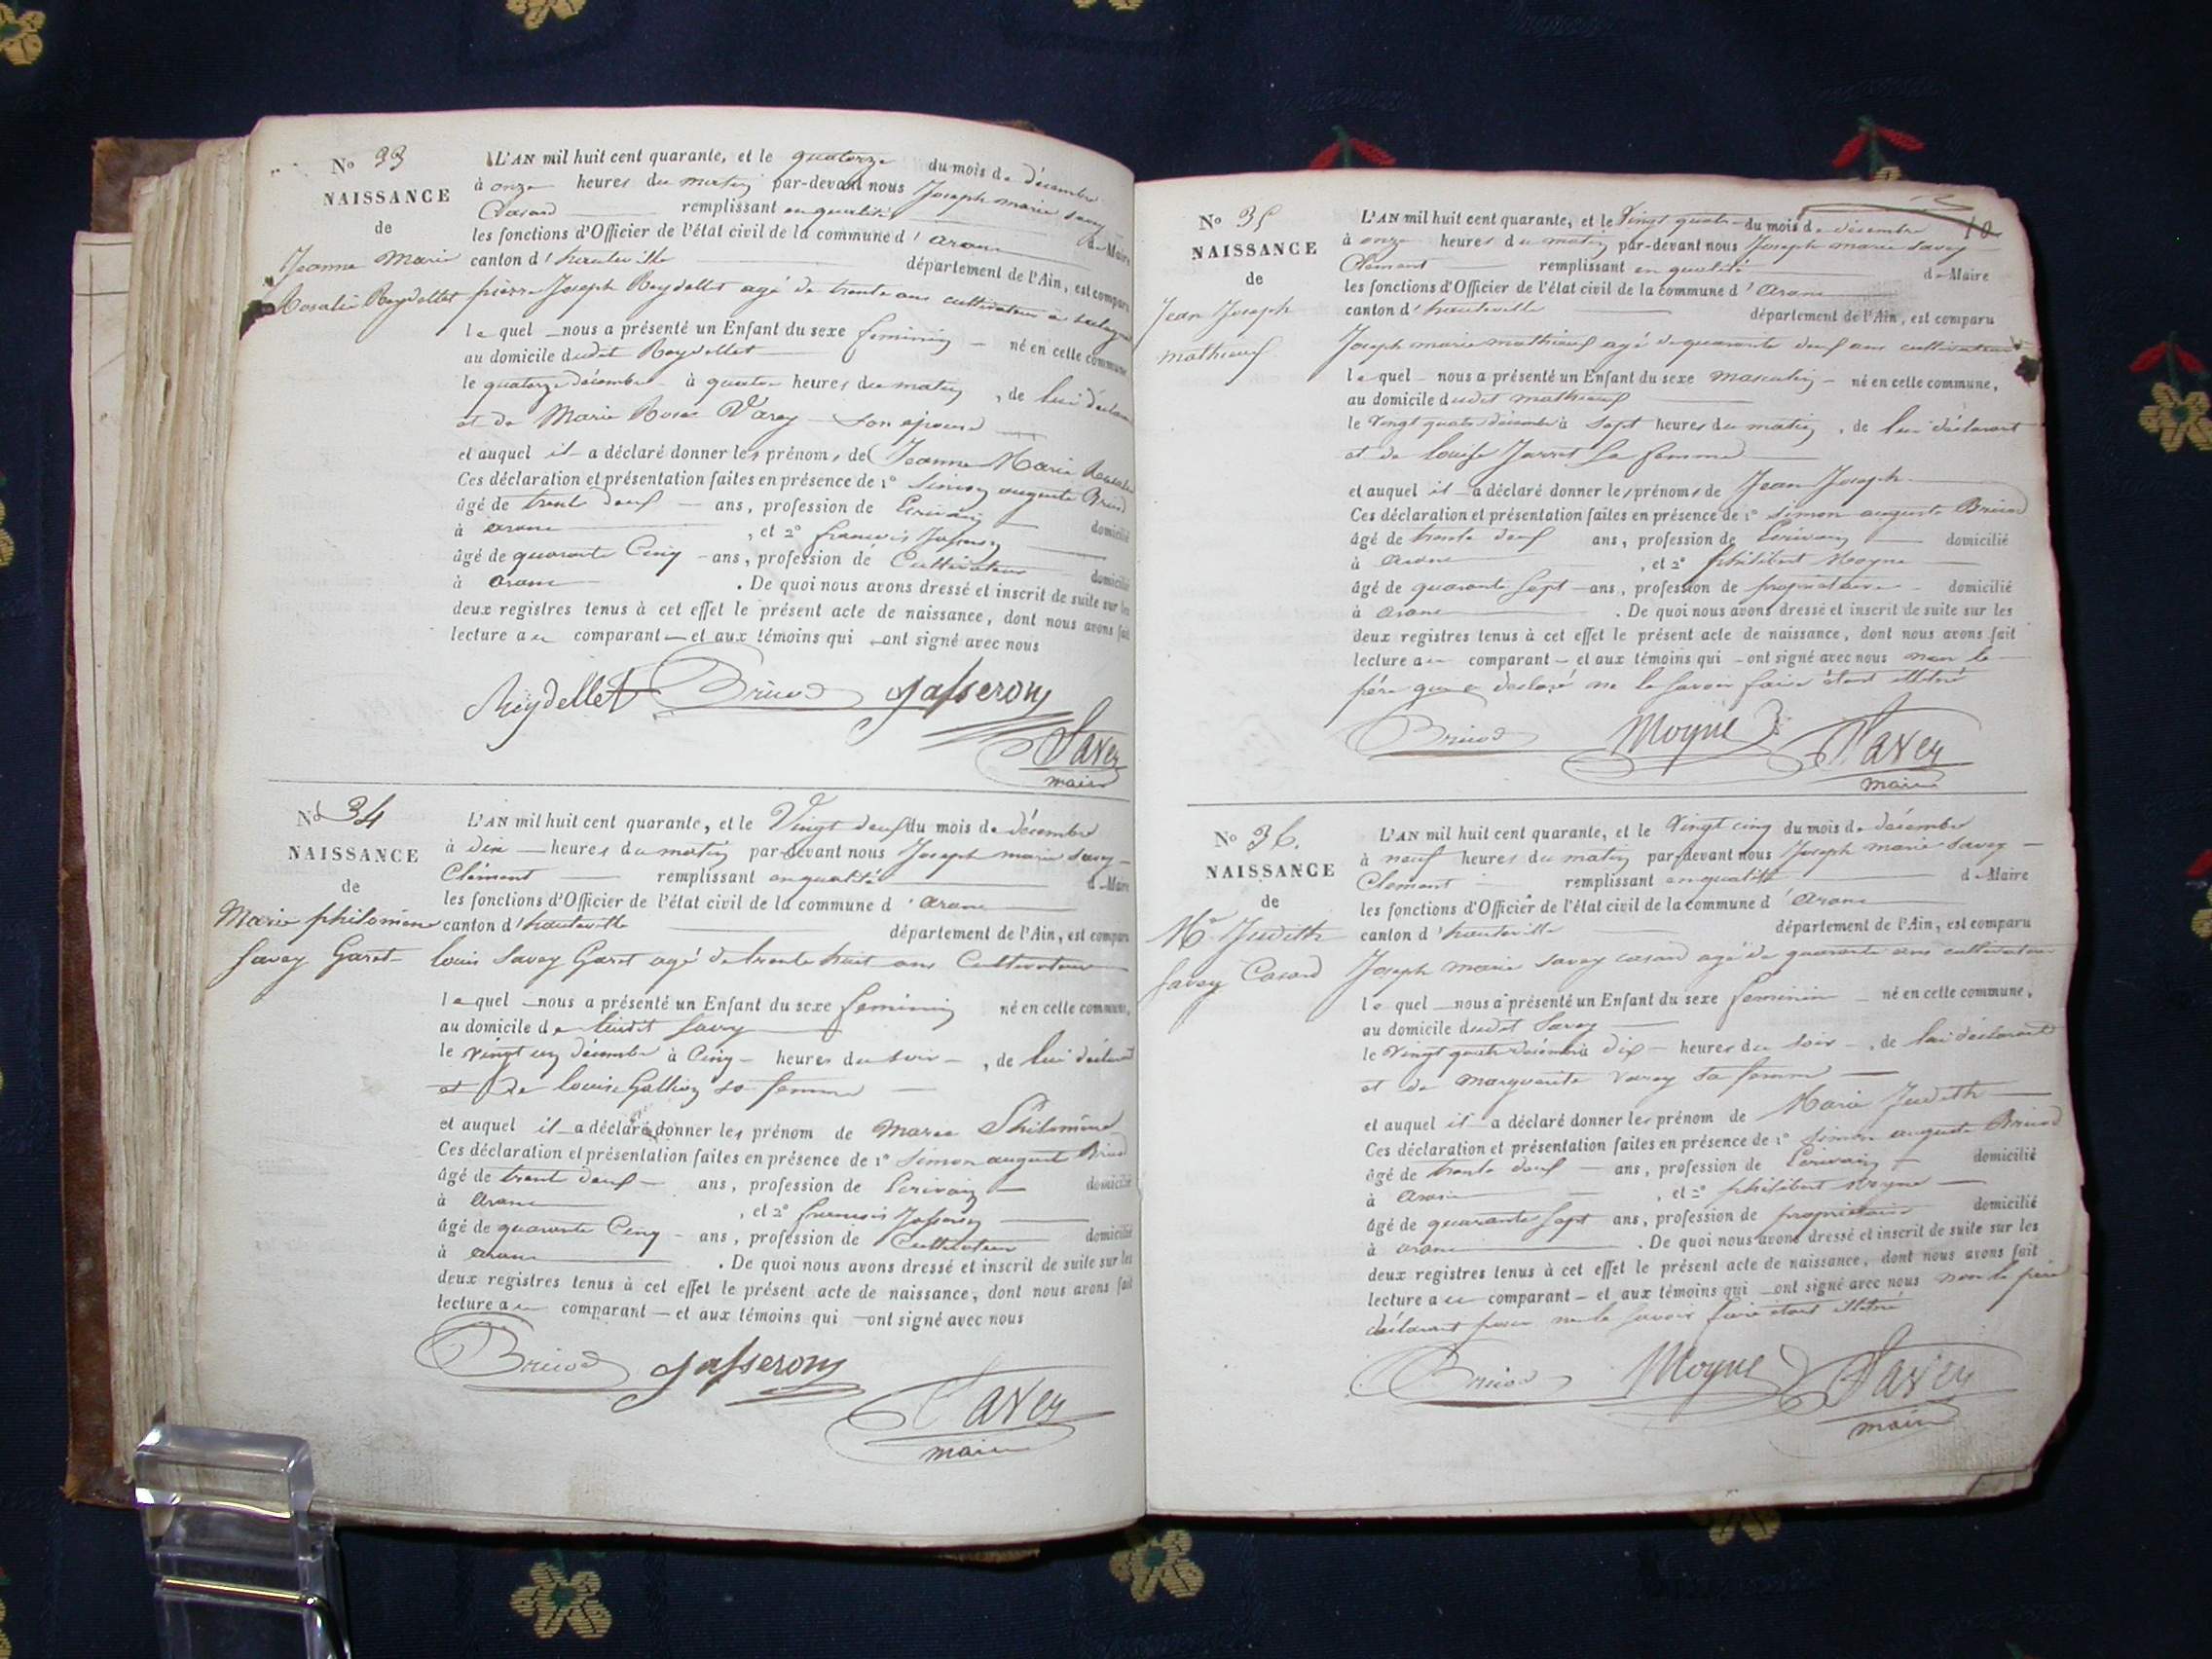 No 33
NAISSANCE
de
Jeanne Marie
Rosalie Reydellet
L'AN mil huit cent quarante, et le quatorze du mois de décembre
à onze heures du matin par-devant nous Joseph marie savey
remplissant en qualité de Maire
les fonctions d'Officier de l'état civil de la commune d' aranc
canton d' hauteville département de l'Ain, est comparu
pierre Joseph Reydellet agé de trente ans cultivateur à
le quel nous a présenté un Enfant du sexe feminin né en cette commune,
au domicile dudit Reydellet
le quatorze décembre à quatre heures du matin, de lui déclarant
et de Marie Rose Varey son épouse
et auquel il a déclaré donner les prénoms de Jeanne Marie Rosalie
Ces déclaration et présentation faites en présence de 1º Simon auguste Bricod
âgé de trent deux ans, profession de Ecrivain domicilié
à aranc, et 2º francois Jasseron
âgé de quarante Cinq ans, profession de Cultivateur domicilié
à aranc. De quoi nous avons dressé et inscrit de suite sur les
deux registres tenus à cet effet le présent acte de naissance, dont nous avons fait
lecture au comparant et aux témoins qui ont signé avec nous
Reydellet Bricod Jasseron
Savey
maire
No 34
NAISSANCE
de
Marie philomène
Savey Garet
L'AN mil huit cent quarante, et le Vingt deux du mois de décembre
à dix heures du matin par-devant nous Joseph marie savey
Clément remplissant en qualité de Maire
les fonctions d'Officier de l'état civil de la commune d' aranc
canton d' hauteville département de l'Ain, est comparu
louis Savey Garet agé de trente huit ans Cultivateur
le quel nous a présenté un Enfant du sexe feminin né en cette commune,
au domicile de ludit Savey
le vingt un décembre à Cinq heures du soir, de lui déclarant
et de louise Gallion sa femme
et auquel il a déclaré donner les prénom de Marie Philomène
Ces déclaration et présentation faites en présence de 1º Simon august Bricod
âgé de trent deux ans, profession de Ecrivain domicilié
à aranc, et 2º francois Jasseron
âgé de quarante Cinq ans, profession de Cultivateur domicilié
à aranc. De quoi nous avons dressé et inscrit de suite sur les
deux registres tenus à cet effet le présent acte de naissance, dont nous avons fait
lecture au comparant et aux témoins qui ont signé avec nous
Bricod Jasseron
Savey
maire
10
No 35
NAISSANCE
de
Jean Joseph
mathieux
L'AN mil huit cent quarante, et le Vingt quatre du mois de décembre
à onze heures du matin par-devant nous Joseph marie savey
Clément remplissant en qualité de Maire
les fonctions d'Officier de l'état civil de la commune d' aranc
canton d' hauteville département de l'Ain, est comparu
Joseph marie mathieux agé de quarante deux ans cultivateur
le quel nous a présenté un Enfant du sexe masculin né en cette commune,
au domicile dudit mathieux
le vingt quatre décembre à sept heures du matin, de lui déclarant
et de louise Jarret sa femme
et auquel il a déclaré donner les prénoms de Jean Joseph
Ces déclaration et présentation faites en présence de 1º Simon auguste Bricod
âgé de trente deux ans, profession de Ecrivain domicilié
à aranc, et 2º philibert Moyne
âgé de quarante sept ans, profession de propriétaire domicilié
à aranc. De quoi nous avons dressé et inscrit de suite sur les
deux registres tenus à cet effet le présent acte de naissance, dont nous avons fait
lecture au comparant et aux témoins qui ont signé avec nous non le
père qui a declaré ne le savoir faire étant illitéré
Bricod Moyne Savey
maire
No 36.
NAISSANCE
de
Me Judith
Savey Casard
L'AN mil huit cent quarante, et le Vingt cinq du mois de décembre
à neuf heures du matin par-devant nous Joseph marie savey
Clement remplissant en qualité de Maire
les fonctions d'Officier de l'état civil de la commune d' aranc
canton d' hauteville département de l'Ain, est comparu
Joseph marie savey casard agé de quarante ans cultivateur
le quel nous a présenté un Enfant du sexe feminin né en cette commune,
au domicile dudit Savey
le Vingt quatre décembre à dix heures du soir, de lui déclarant
et de marguerite varey sa femme
et auquel il a déclaré donner les prénom de Marie Judith
Ces déclaration et présentation faites en présence de 1º Simon auguste Bricod
âgé de trente deux ans, profession de Ecrivain domicilié
à aranc, et 2º philibert moyne
âgé de quarante sept ans, profession de propriétaire domicilié
à aranc. De quoi nous avons dressé et inscrit de suite sur les
deux registres tenus à cet effet le présent acte de naissance, dont nous avons fait
lecture au comparant et aux témoins qui ont signé avec nous non le père
déclarant pour ne le savoir faire étant illitéré
Bricod Moyne Savey
maire